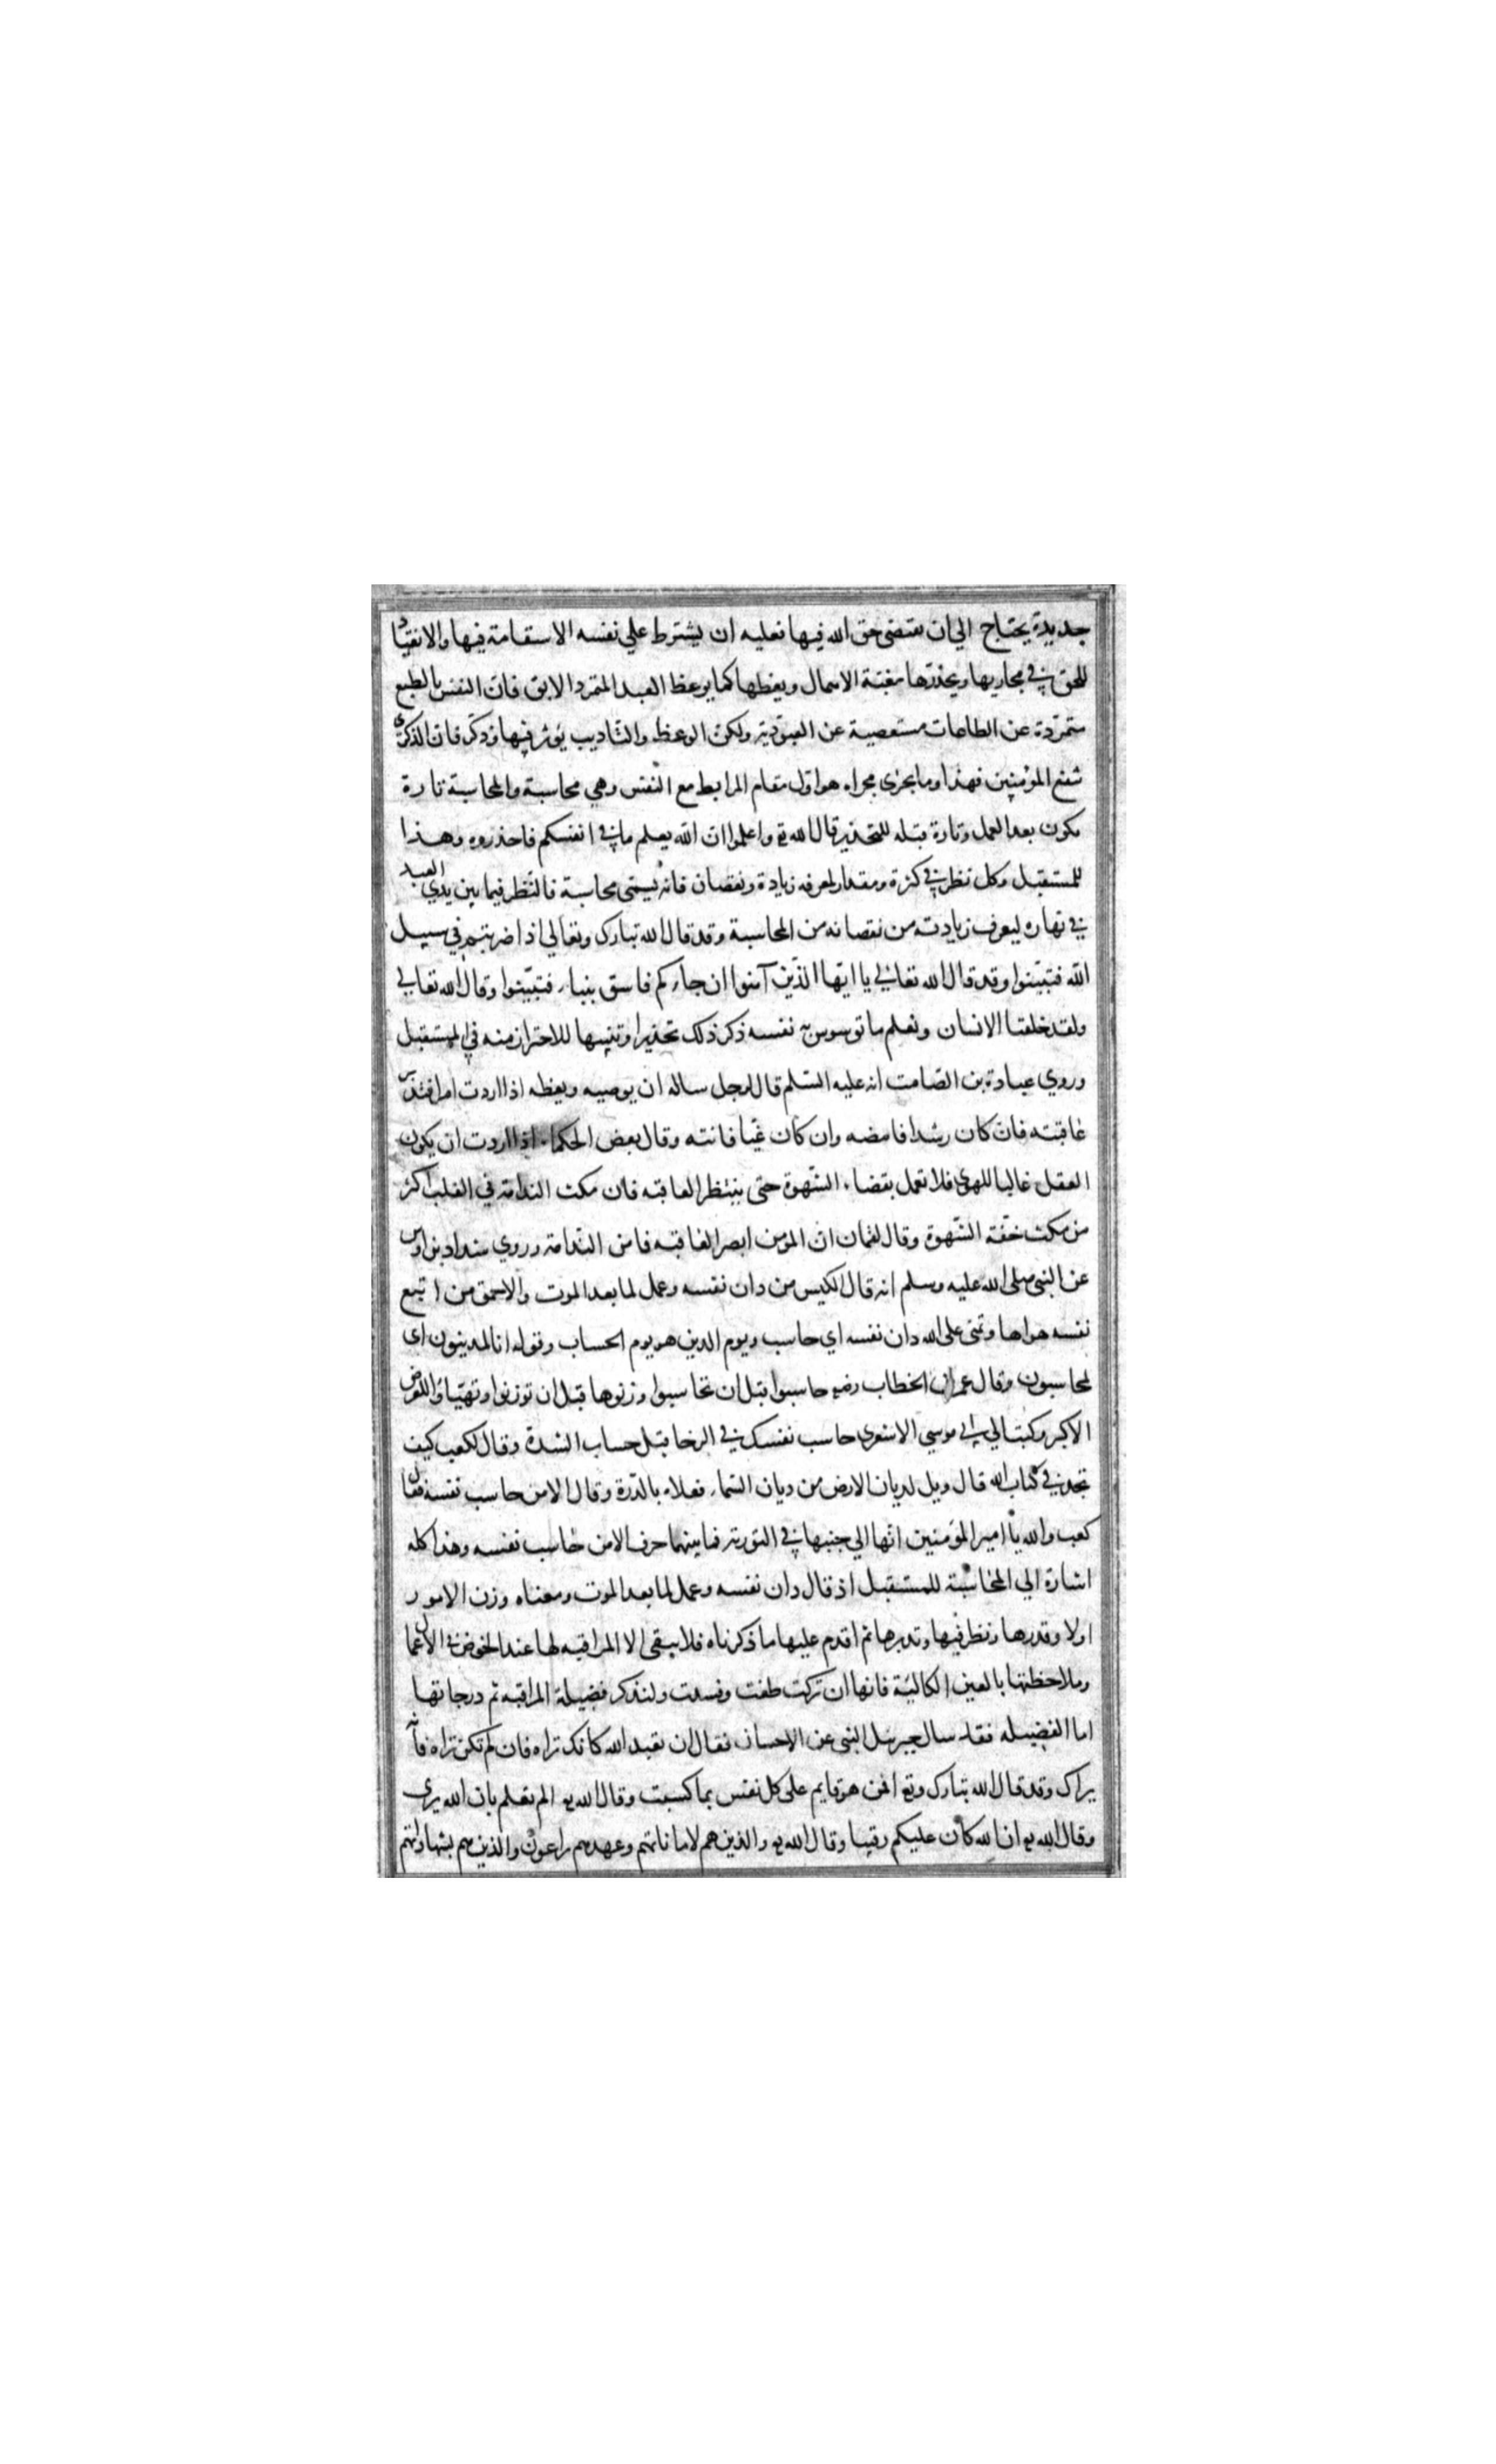 جديدة يحتاج الي ان يقتضى حق الله فيها فعليه ان يشترط علي نفسه الاستقامة فيها والانقياد
للحق في مجاريها ويحذرها مغبّة الاهمال ويعظها كما يوعظ العبد المتمرد الابق فان النفس بالطبع
متمرّدة عن الطاعات مستعصية عن العبوديّة ولكن الوعظ والتّاديب يؤثر فيها وذكّر فان الذكرى
تنفع المؤمنين فهذا وما يجرى مجراه هو اوّل مقام المرابط مع النفس وهي محاسبة والمحاسبة تارة
يكون بعد العمل وتارة قبله للتحذير قال الله تع واعلموا ان الله يعلم ما في انفسكم فاحذروه وهذا
للمستقبل وكل نظر في كثرة ومقدار لمعرفه زيادة ونقصان فانه يسمّى محاسبة فالنّظر فيما بين يدي العبد
في نهاره ليعرف زيادته من نقصانه من المحاسبة وقد قال الله تبارك وتعالي اذا ضربتم في سبيل
الله فتبيّنوا وقد قال الله تعالي يا ايّها الذّين آمنوا ان جاءكم فاسق بنباء فتبيّنوا وقال الله تعالي
ولقد خلقنا الانسان ونعلم ما توسوس به نفسه ذكر ذلك تحذيرا وتنبيها للاحتراز منه في المستقبل
وروي عبادة بن الصّامت انه عليه السّلم قال لرجل ساله ان يوصيه ويعظه اذا اردت امرا فتدبر
عاقبته فان كان رشدا فامضه وان كان غيّا فانته وقال بعض الحكماء اذا اردت ان يكون
العقل غالبا للهوى فلا تعمل بقضاء الشّهوة حتى ينتظر العاقبه فان مكث الندامة في القلب اكثر
من مكث خفّة الشّهوة وقال لقمان انّ المومن ابصر العاقبه فامن النّدامة وروي شداد بن اوس
عن النبي صلى الله عليه وسلم انه قال الكيس من دان نفسه وعمل لما بعد الموت والاحمق من اتبع
نفسه هواها وتمنى على الله دان نفسه اي حاسب ويوم الدين هو يوم الحساب وقوله انا لمدينون اى
لمحاسبون وقال عمر ابن الخطاب رضي حاسبوا قبل ان تحاسبوا وزنوها قبل ان توزنوا وتهيّاوا للعرض
الاكبر وكتب الي ابي موسي الاشعرى حاسب نفسك في الرخا قبل حساب الشدة وقال لكعب كيف
تجدني في كتاب الله قال ويل لديان الارض من ديان السّماء فعلاه بالدّرة وقال الا من حاسب نفسه فقال
كعب والله يا امير المؤمنين انّها الي جنبها في التوريّة ما بينهما حرف الا من حاسب نفسه وهذا كله
اشارة الي المحاسبة للمستقبل اذ قال دان نفسه وعمل لما بعد الموت ومعناه وزن الامور
اولا وقدرها ونظر فيها وتدبرها ثم اقدم عليها ما ذكرناه فلا يبقى الا المراقبه لها عند الخوض في الاعمال
وملاحظتها بالعين الكاليّة فانها ان تركت طغت وفسدت ولنذكر فضيلة المراقبه ثم درجاتها
اما الفضيله فقد سال جبرئيل النبي عن الاحسان فقال ان تعبد الله كانك تراه فان لم تكن تراه فانّه
يراك وقد قال الله تبارك وتع افمن هو قايم على كل نفس بما كسبت وقال الله تع الم يعلم بان الله يرى
وقال الله تع ان الله كان عليكم رقيبا وقال الله تع والذين هم لاماناتهم وعهدهم راعون والذين هم بشهاداتهم